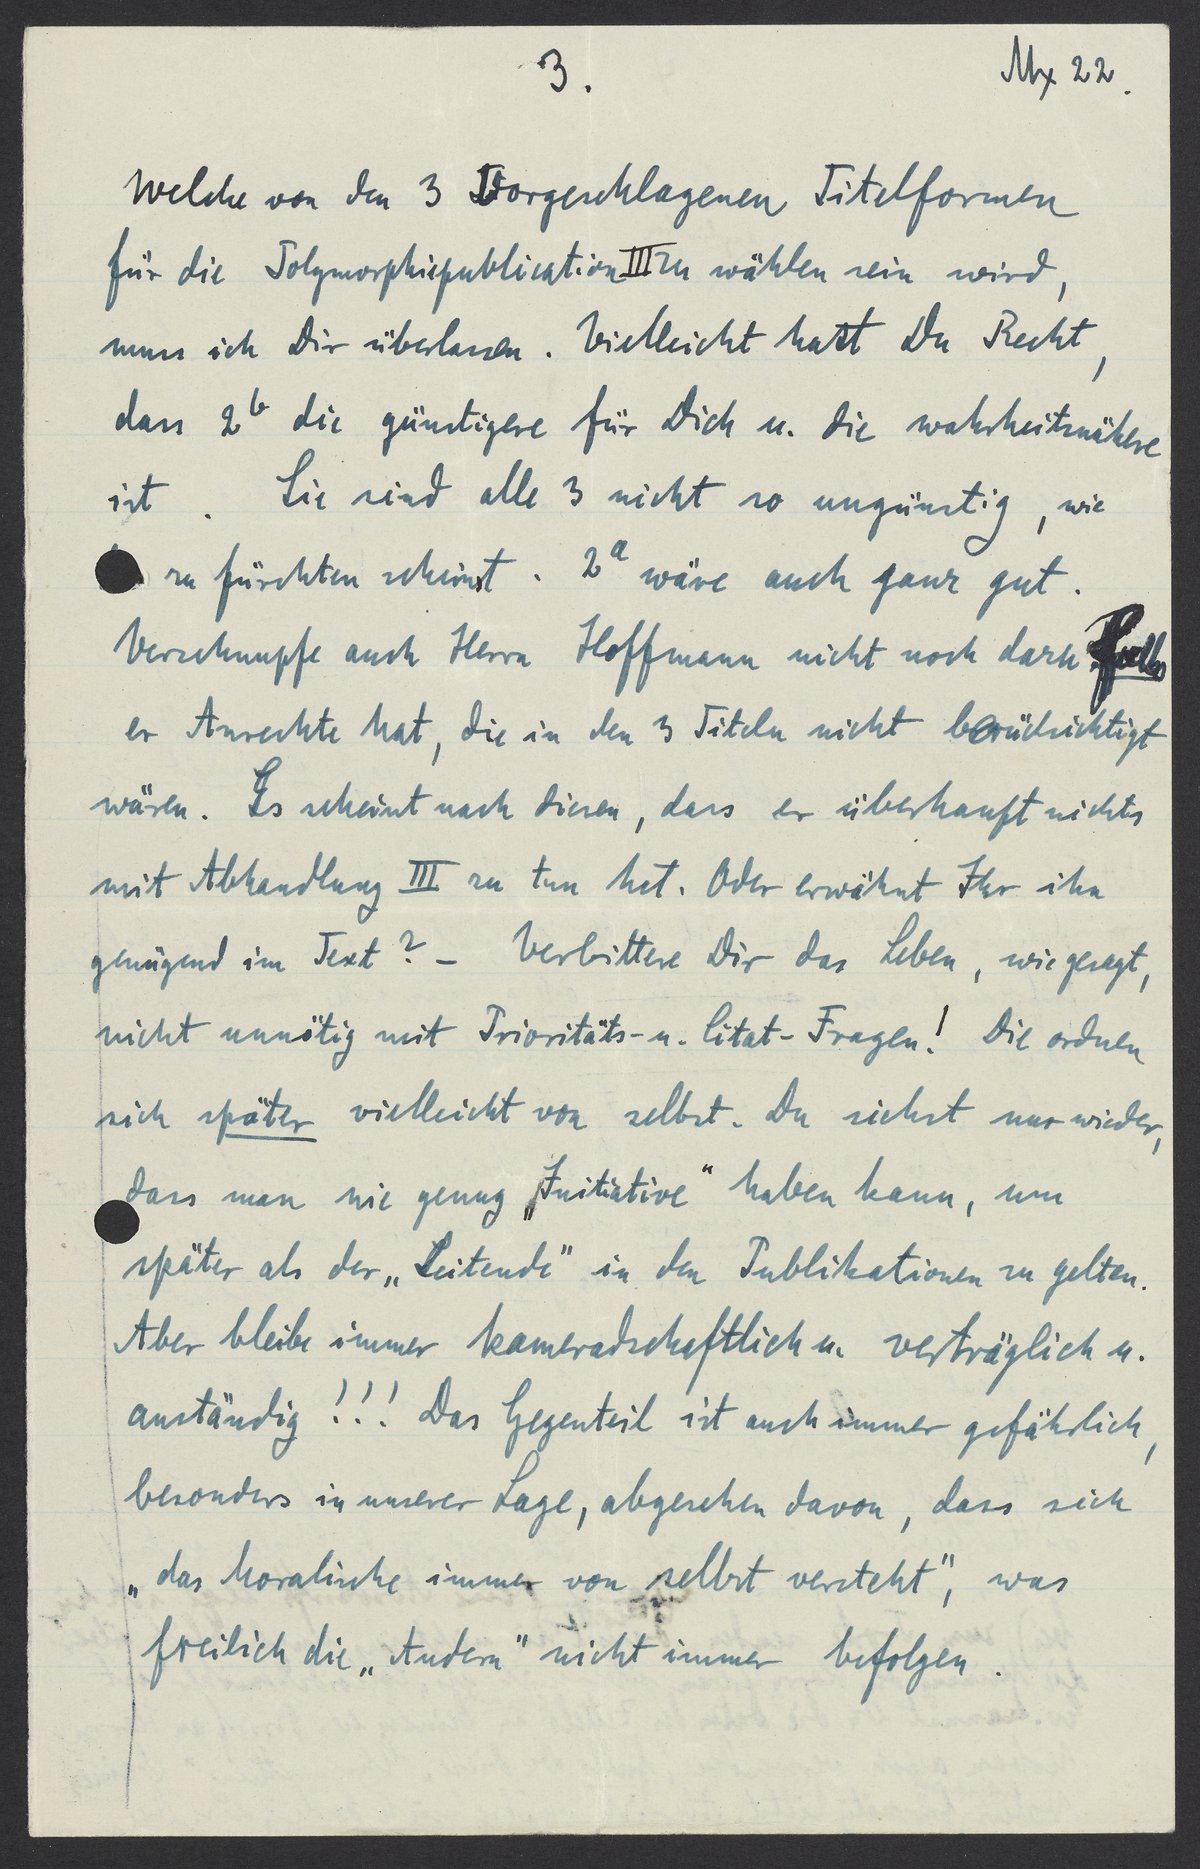 3.
Mx 22.
Welche von den 3 Vorgeschlagenen Titelformen
für die Polymorphiepublication III zu wählen sein wird,
muss ich Dir überlassen. Vielleicht hast Du Recht,
dass 2b die günstigere für Dich u. die wahrheitsnähere
ist. Sie sind alle 3 nicht so ungünstig, wie
zu fürchten scheinst. 2a wäre auch ganz gut.
Verschnupfe auch Herrn Hoffmann nicht noch dazu. Falls
er Anrechte hat, die in den 3 Titeln nicht berücksichtigt
wären. Es scheint nach diesen, dass er überhaupt nichts
mit Abhandlung III zu tun hat. Oder erwähnt Ihr ihn
genügend im Text? – Verbittere Dir das Leben, wie gesagt,
nicht unnötig mit Prioritäts- u. Citat-Fragen! Die ordnen
sich später vielleicht von selbst. Du siehst nur wieder,
dass man nie genug „Initiative" haben kann, um
später als der „Leitende" in den Publikationen zu gelten.
Aber bleibe immer kameradschaftlich u. verträglich u.
anständig!!! Das Gegenteil ist auch immer gefährlich,
besonders in unserer Lage, abgesehen davon, dass sich
„das Moralische immer von selbst versteht", was
freilich die „Andern" nicht immer befolgen.